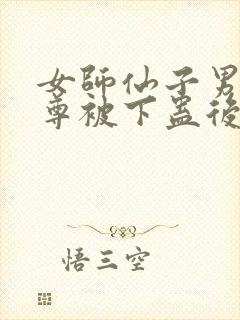 女師仙子男
尊被下蠱後
悟三空